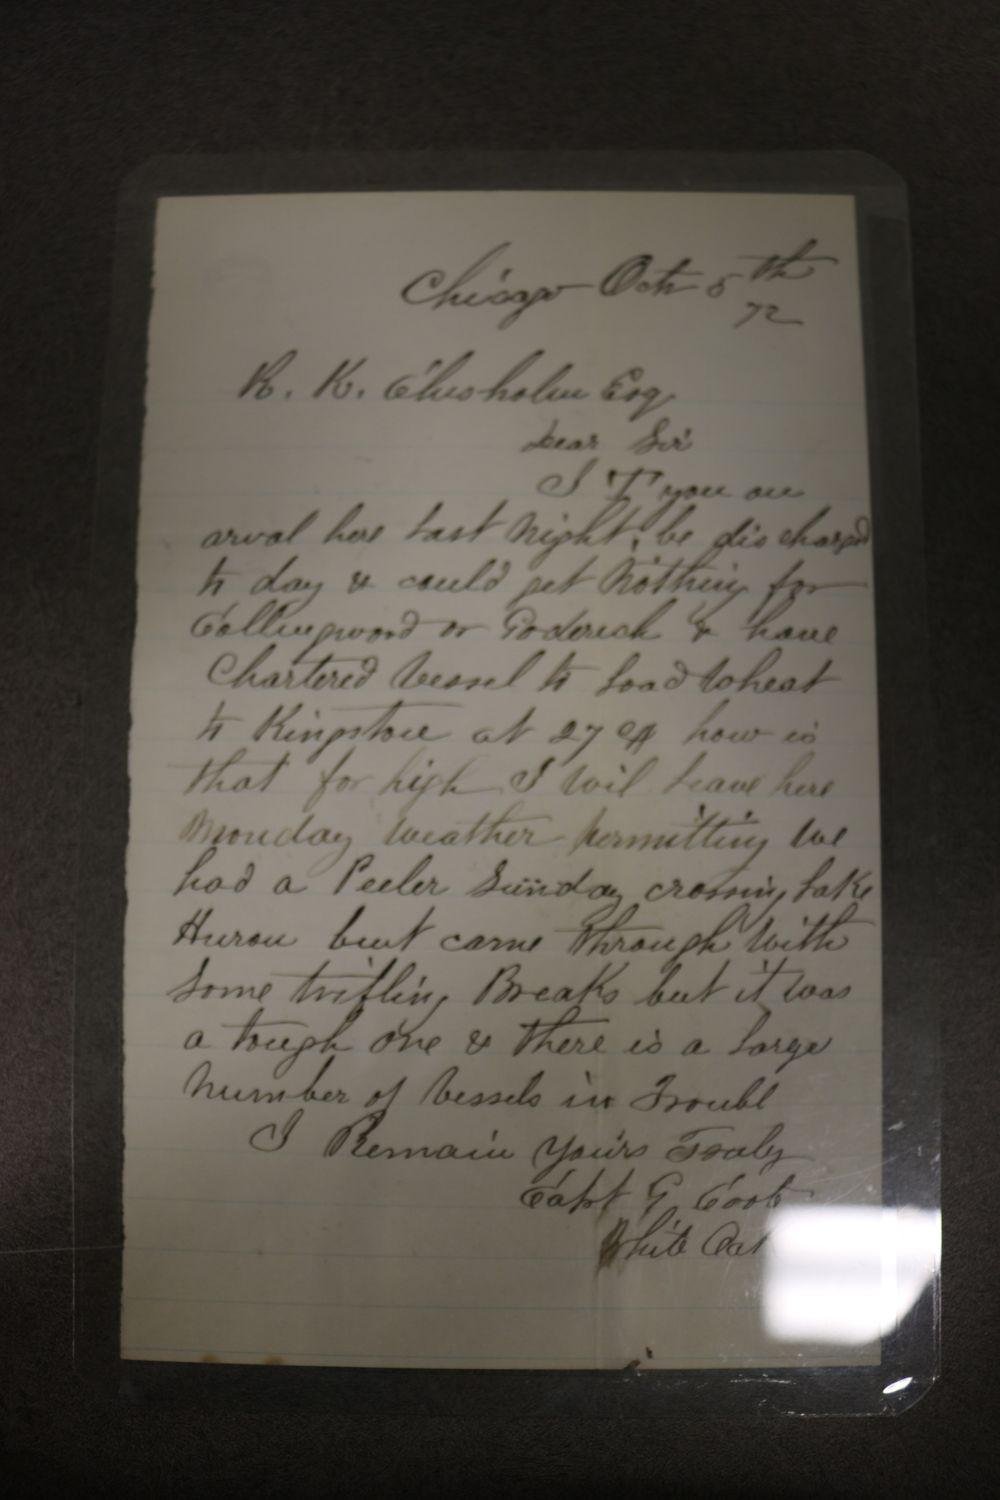 Chicago Oct 5th
72
R. K. Chisholm Esq
Dear Sir
I "T" you on
arval here Last Night, be discharged
to day & could get Nothing for
Collingwood or Goderich & have
Chartered Vessel to Load Wheat
to Kingston at 27 how is
that for high I Wil Leave here
Monday Weather Permitting We
had a Peeler Sunday crossing Lake
Huron but came Through With
Some trifling Breaks but it was
a tough one & There is a Large
Number of Vessels in Troubl
I Remain Yours Truly
Capt G
White